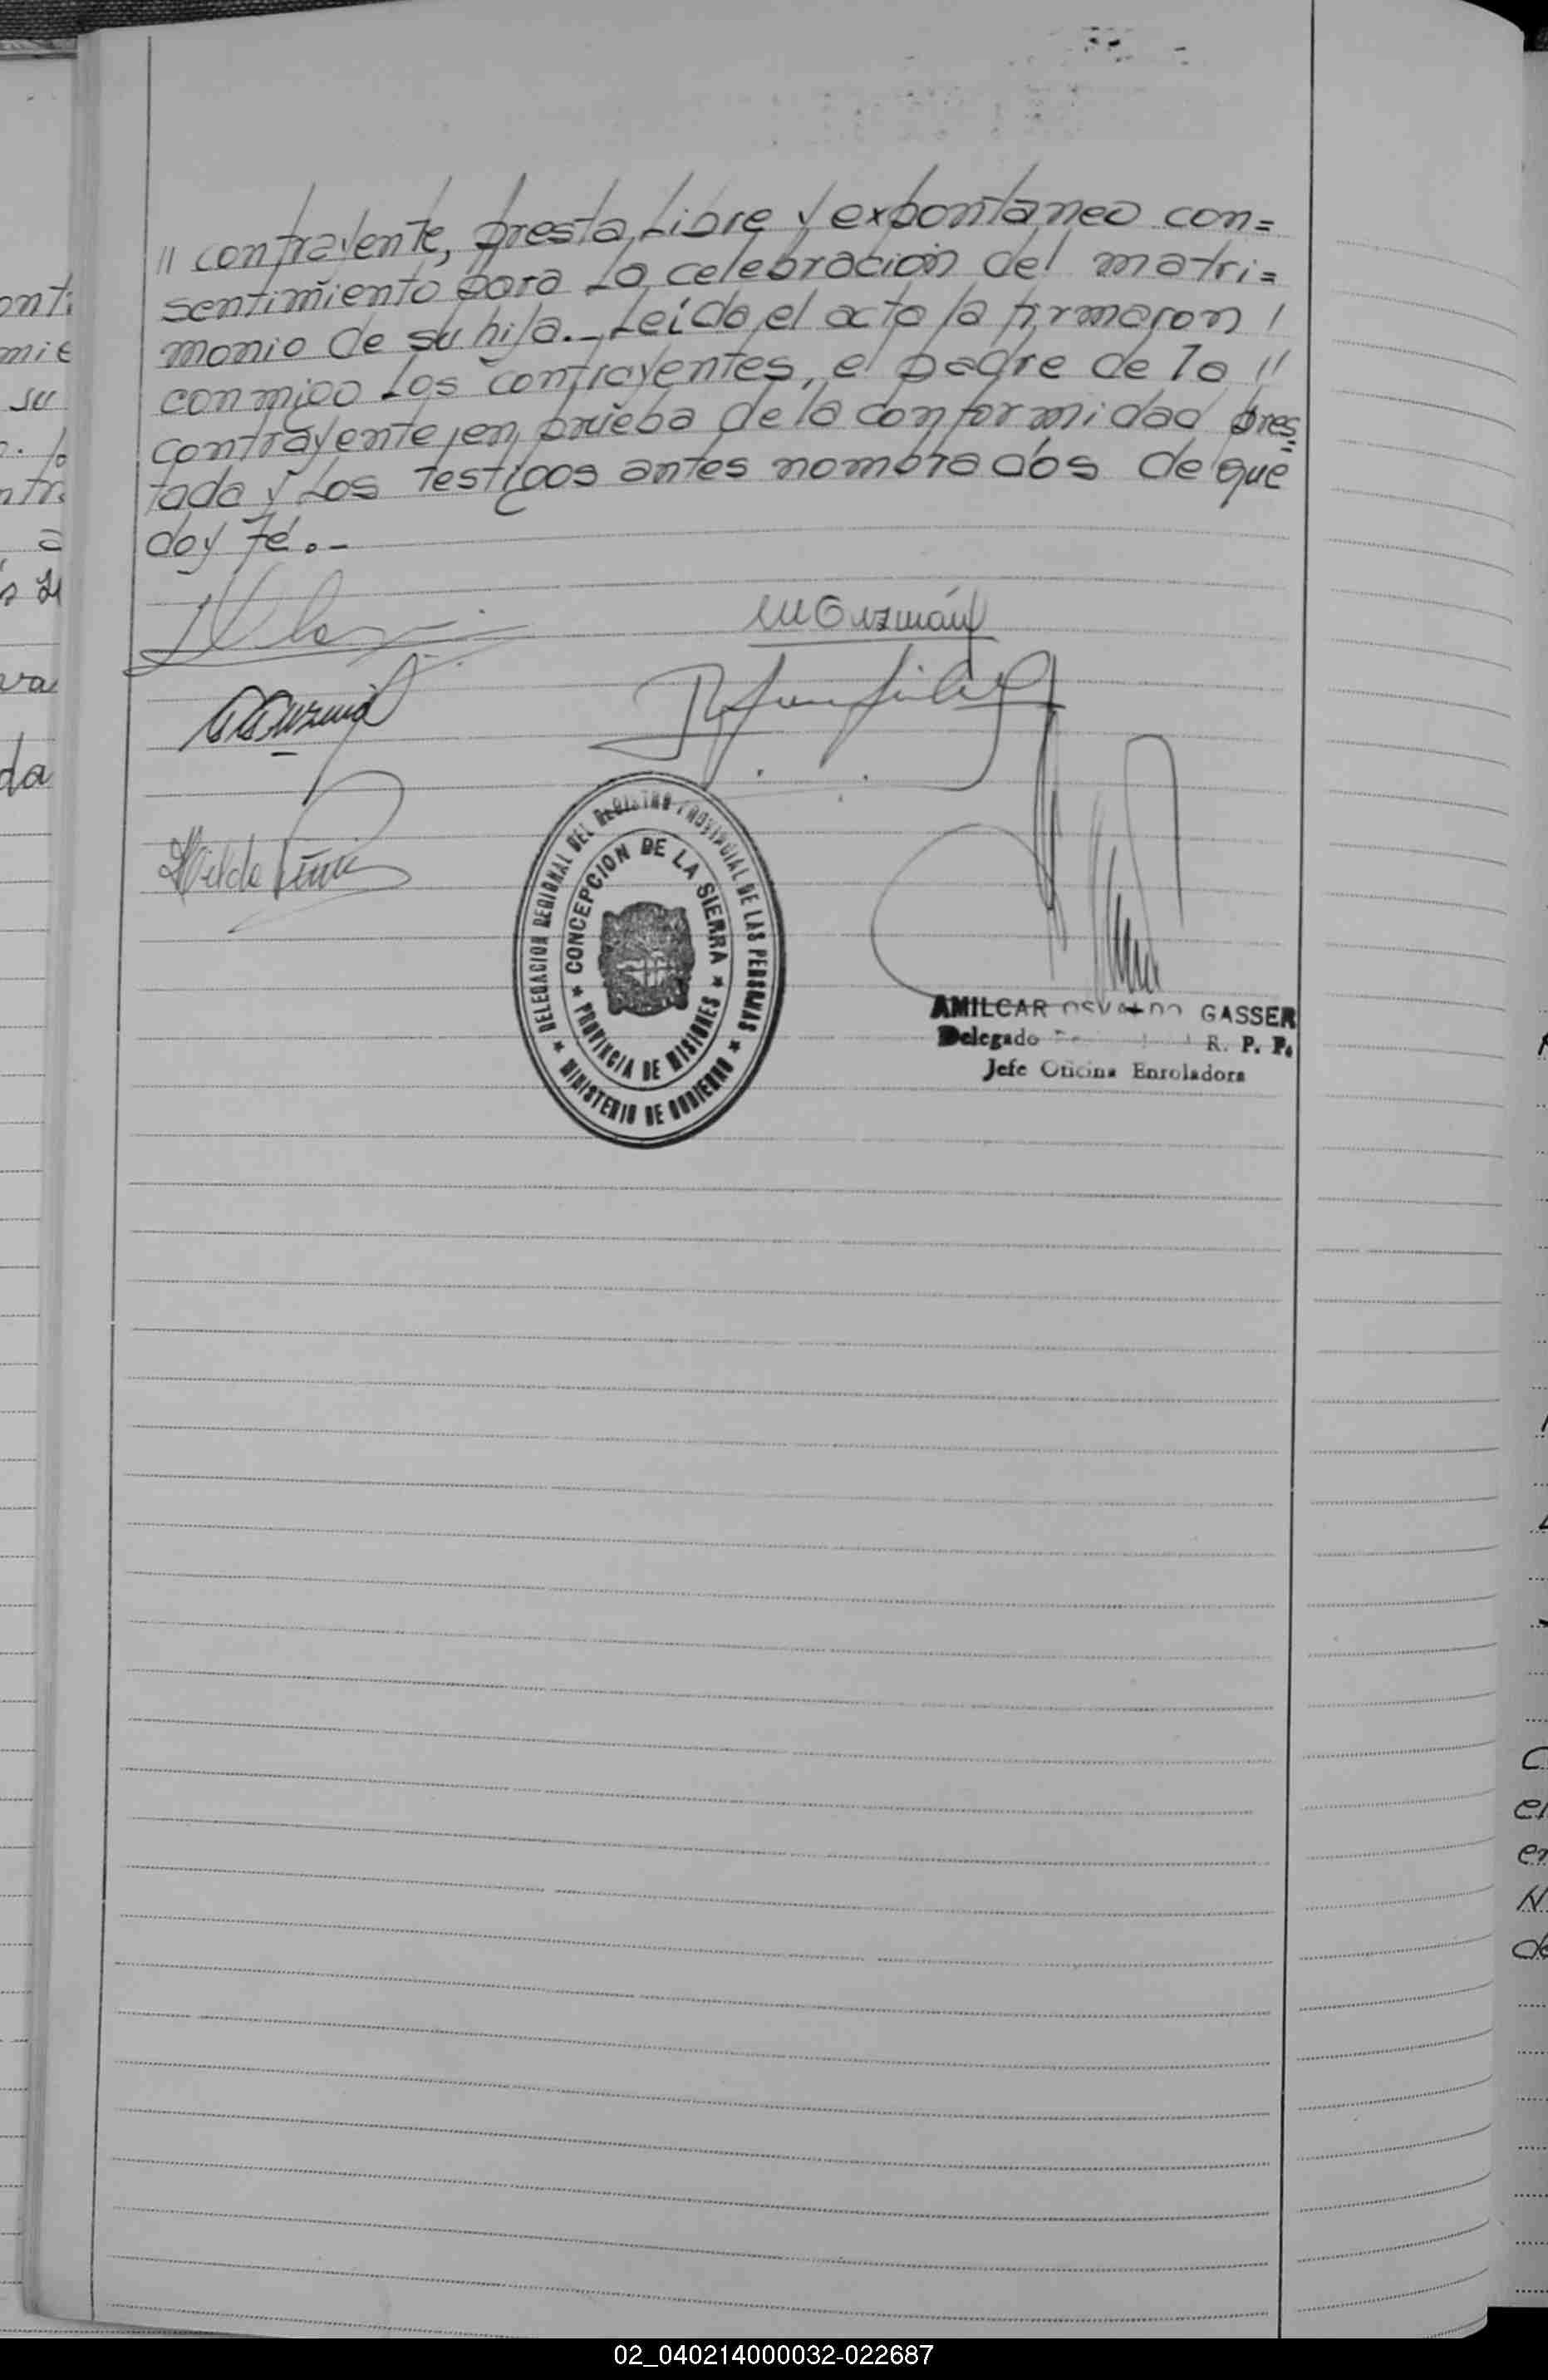 // contrayente, presta Libre y expontaneo con=
sentimiento para La celebración del matri=
monio de su hija.- Leída el acta la firmaron /
conmigo Los contrayentes, el padre de la //
contrayente, en prueba de la conformidad pres=
tada y Los Testigos antes nombrados de que
doy Fé.-
M Guzmán
Hilda
DELEGACION REGIONAL DEL REGISTRO PROVINCIAL DE LAS PERSONAS
★ MINISTERIO DE GOBIERNO ★
CONCEPCION DE LA SIERRA
★ PROVINCIA DE MISIONES ★
AMILCAR OSVALDO GASSER
Delegado R. P. P.
Jefe Oficina Enroladora
ont
mie
su
va
da
el
de
02_040214000032-022687